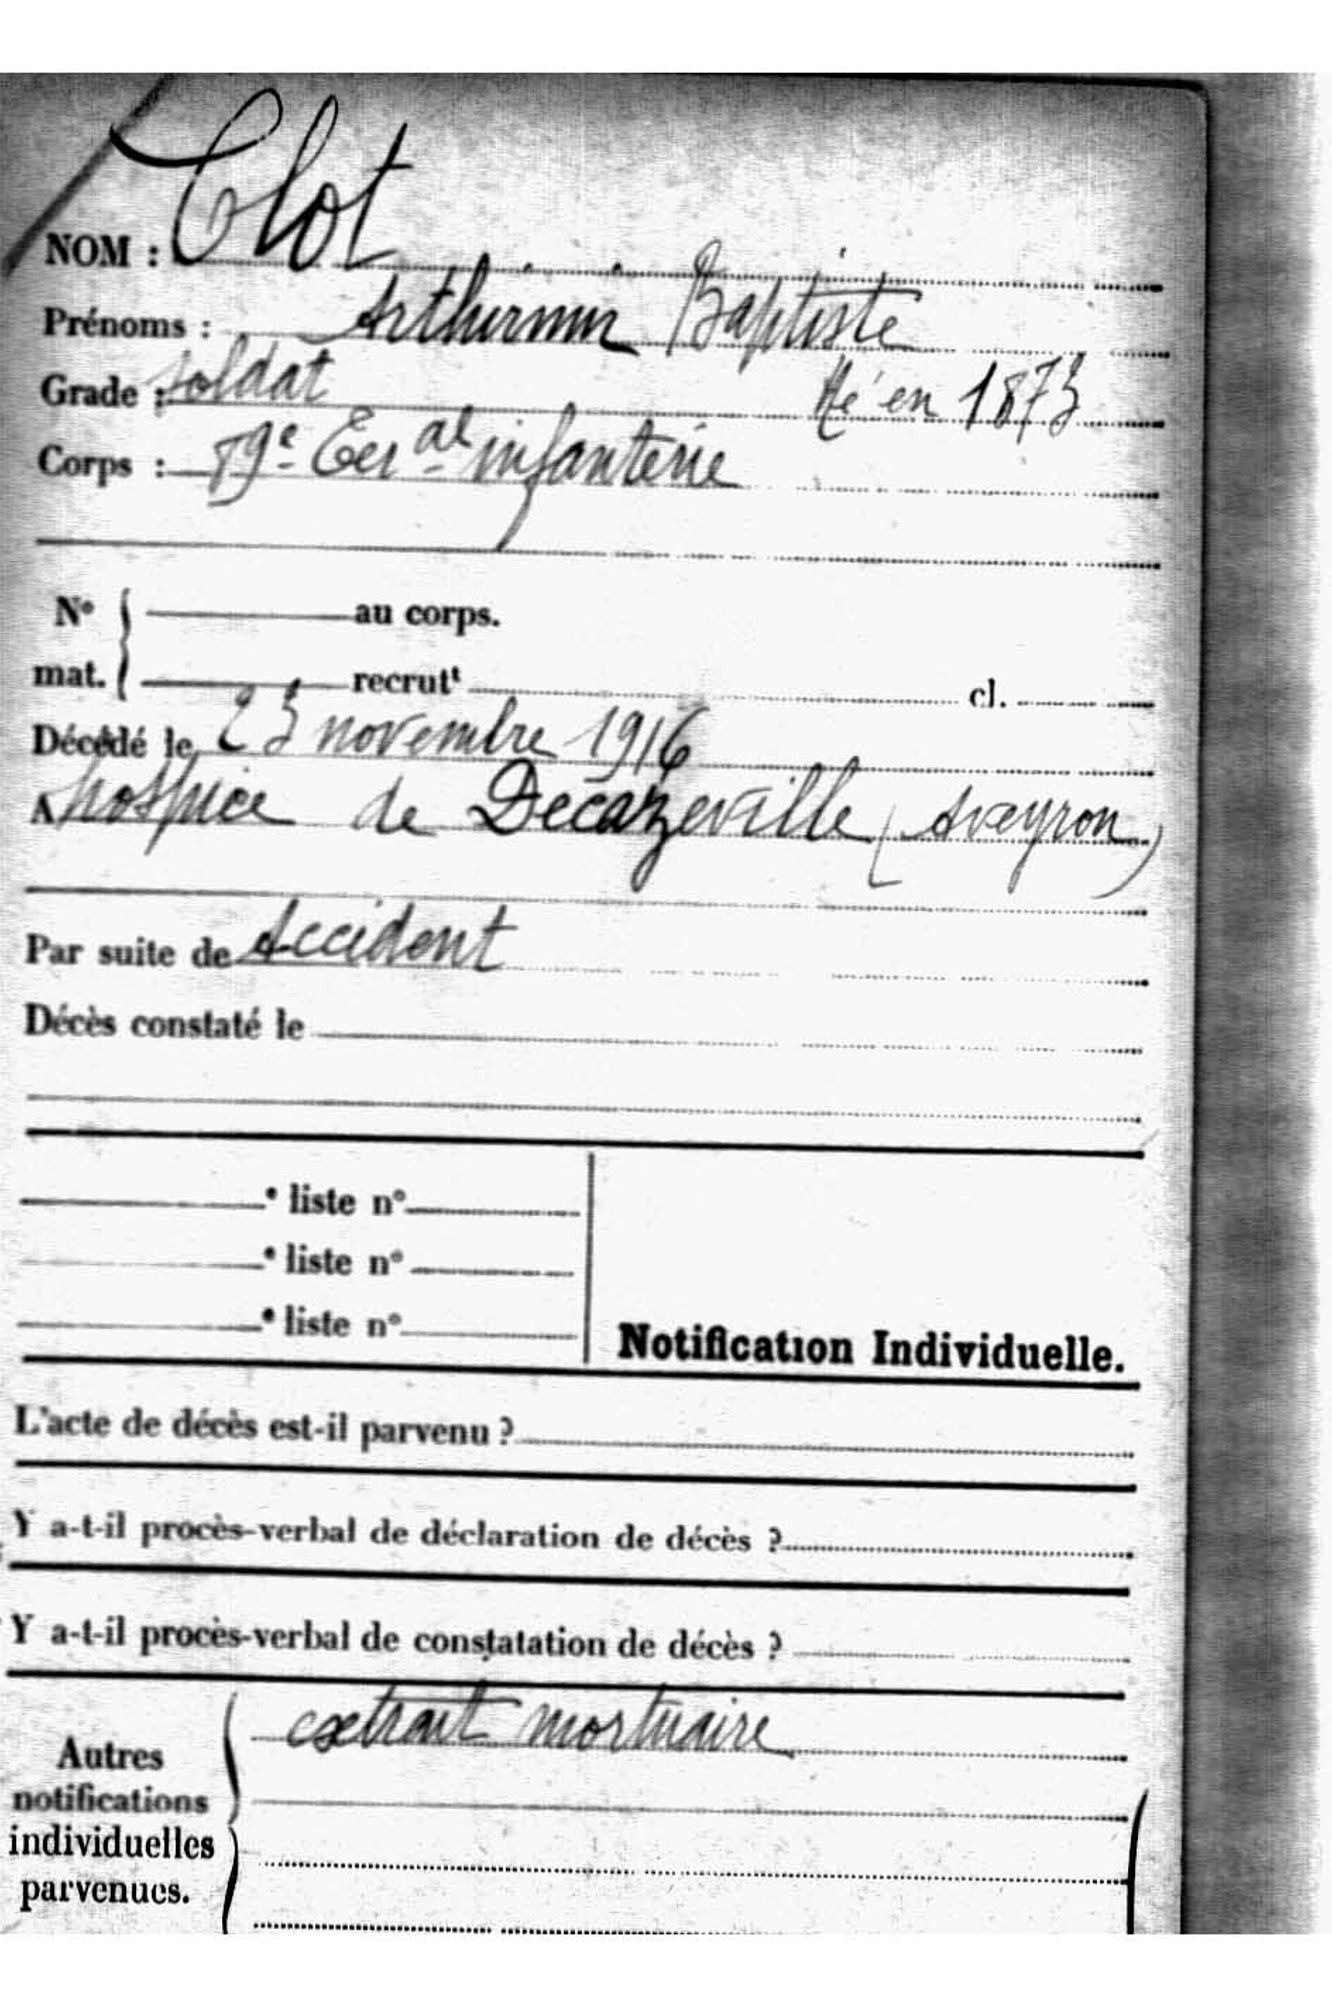 NOM : Clot
Prénoms : Baptiste
Grade : soldat Né en 1873
Corps : 79e Ter al infanterie
No au corps.
mat. recrutt cl.
Décédé le 23 novembre 1916
A hospice de Decazeville (Aveyron)
Par suite de Accident
Décès constaté le
e liste no
e liste no
e liste no
Notification Individuelle.
L'acte de décès est-il parvenu ?
Y a-t-il procès-verbal de déclaration de décès ?
Y a-t-il procès-verbal de constatation de décès ?
extrait mortuaire
Autres
notifications
individuelles
parvenues.